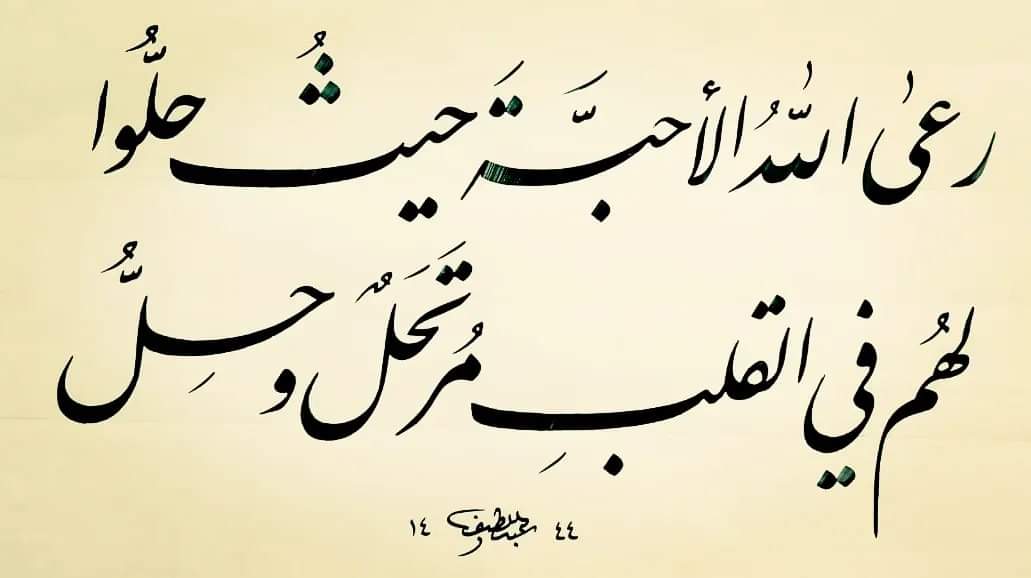 رعىٰ اللهُ الأحبَّةَ حيثُ حلُّوا
لهُم في القلبِ مُرتَحَلٌ وحِلُّ
١٤ عبداللطيف ٤٤